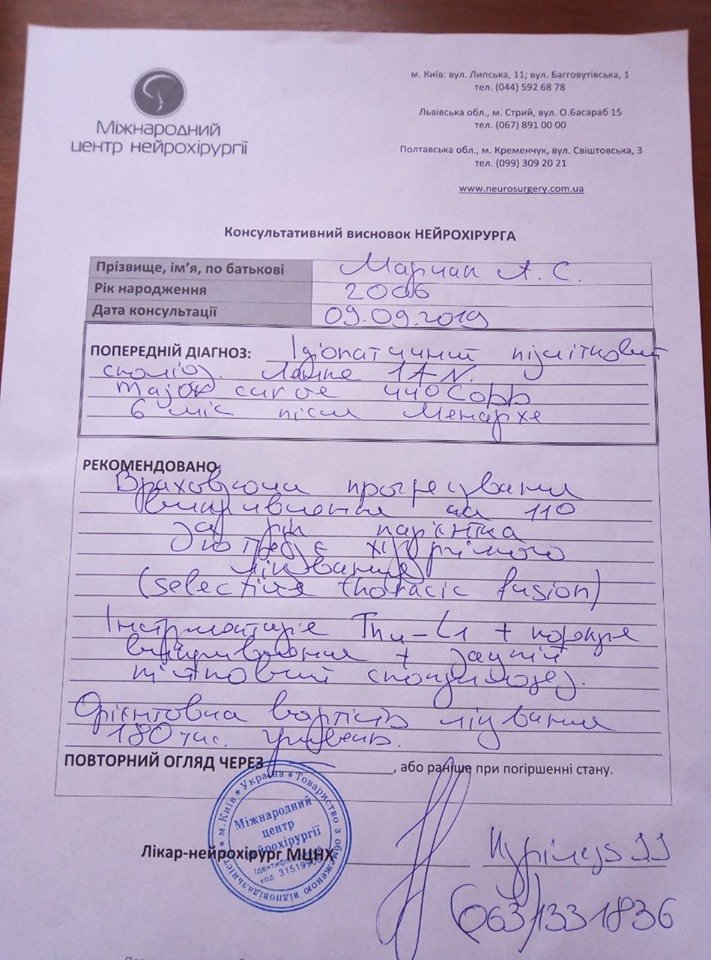 Міжнародний
центр нейрохірургії
м. Київ: вул. Липська, 11; вул. Багговутівська, 1
тел. (044) 592 68 78
Львівська обл., м. Стрий, вул. О.Басараб 15
тел. (067) 891 00 00
Полтавська обл., м. Кременчук, вул. Свіштовська, 3
тел. (099) 309 20 21
www.neurosurgery.com.ua
Консультативний висновок НЕЙРОХІРУРГА
Прізвище, ім’я, по батькові А. С.
Рік народження 2006
Дата консультації 09.09.2019
ПОПЕРЕДНІЙ ДІАГНОЗ: Ідіопатичний підлітковий
сколіоз. Ланке 1AN.
Major curve 44° Cobb
6 міс після менархе
РЕКОМЕНДОВАНО:
Враховуючи прогресування
викривлення на 11°
за рік пацієнтка
потребує хірургічного
лікування
(selective thoracic fusion)
Інструментація Th4-L1 + корекція
викривлення + задній
кістковий спондилодез.
Орієнтовна вартість лікування
180 тис. гривень.
ПОВТОРНИЙ ОГЛЯД ЧЕРЕЗ , або раніше при погіршенні стану.
м.Київ * Україна * Товариство з обмеженою відповідальністю
Міжнародний
центр
нейрохірургії
код 3151990
Лікар-нейрохірург МЦНХ
(063)1331836